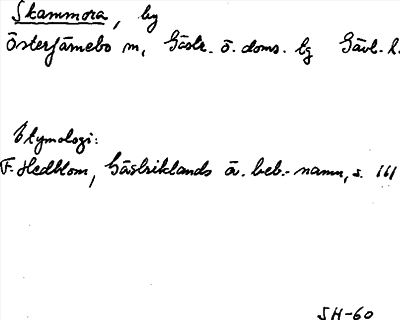 Skammora, by
Österfärnebo sn, Gästr. ö. doms. bg Gävl. l.
Etymologi:
F. Hedblom, Gästriklands ä. beb.-namn, s. 161
SH-60